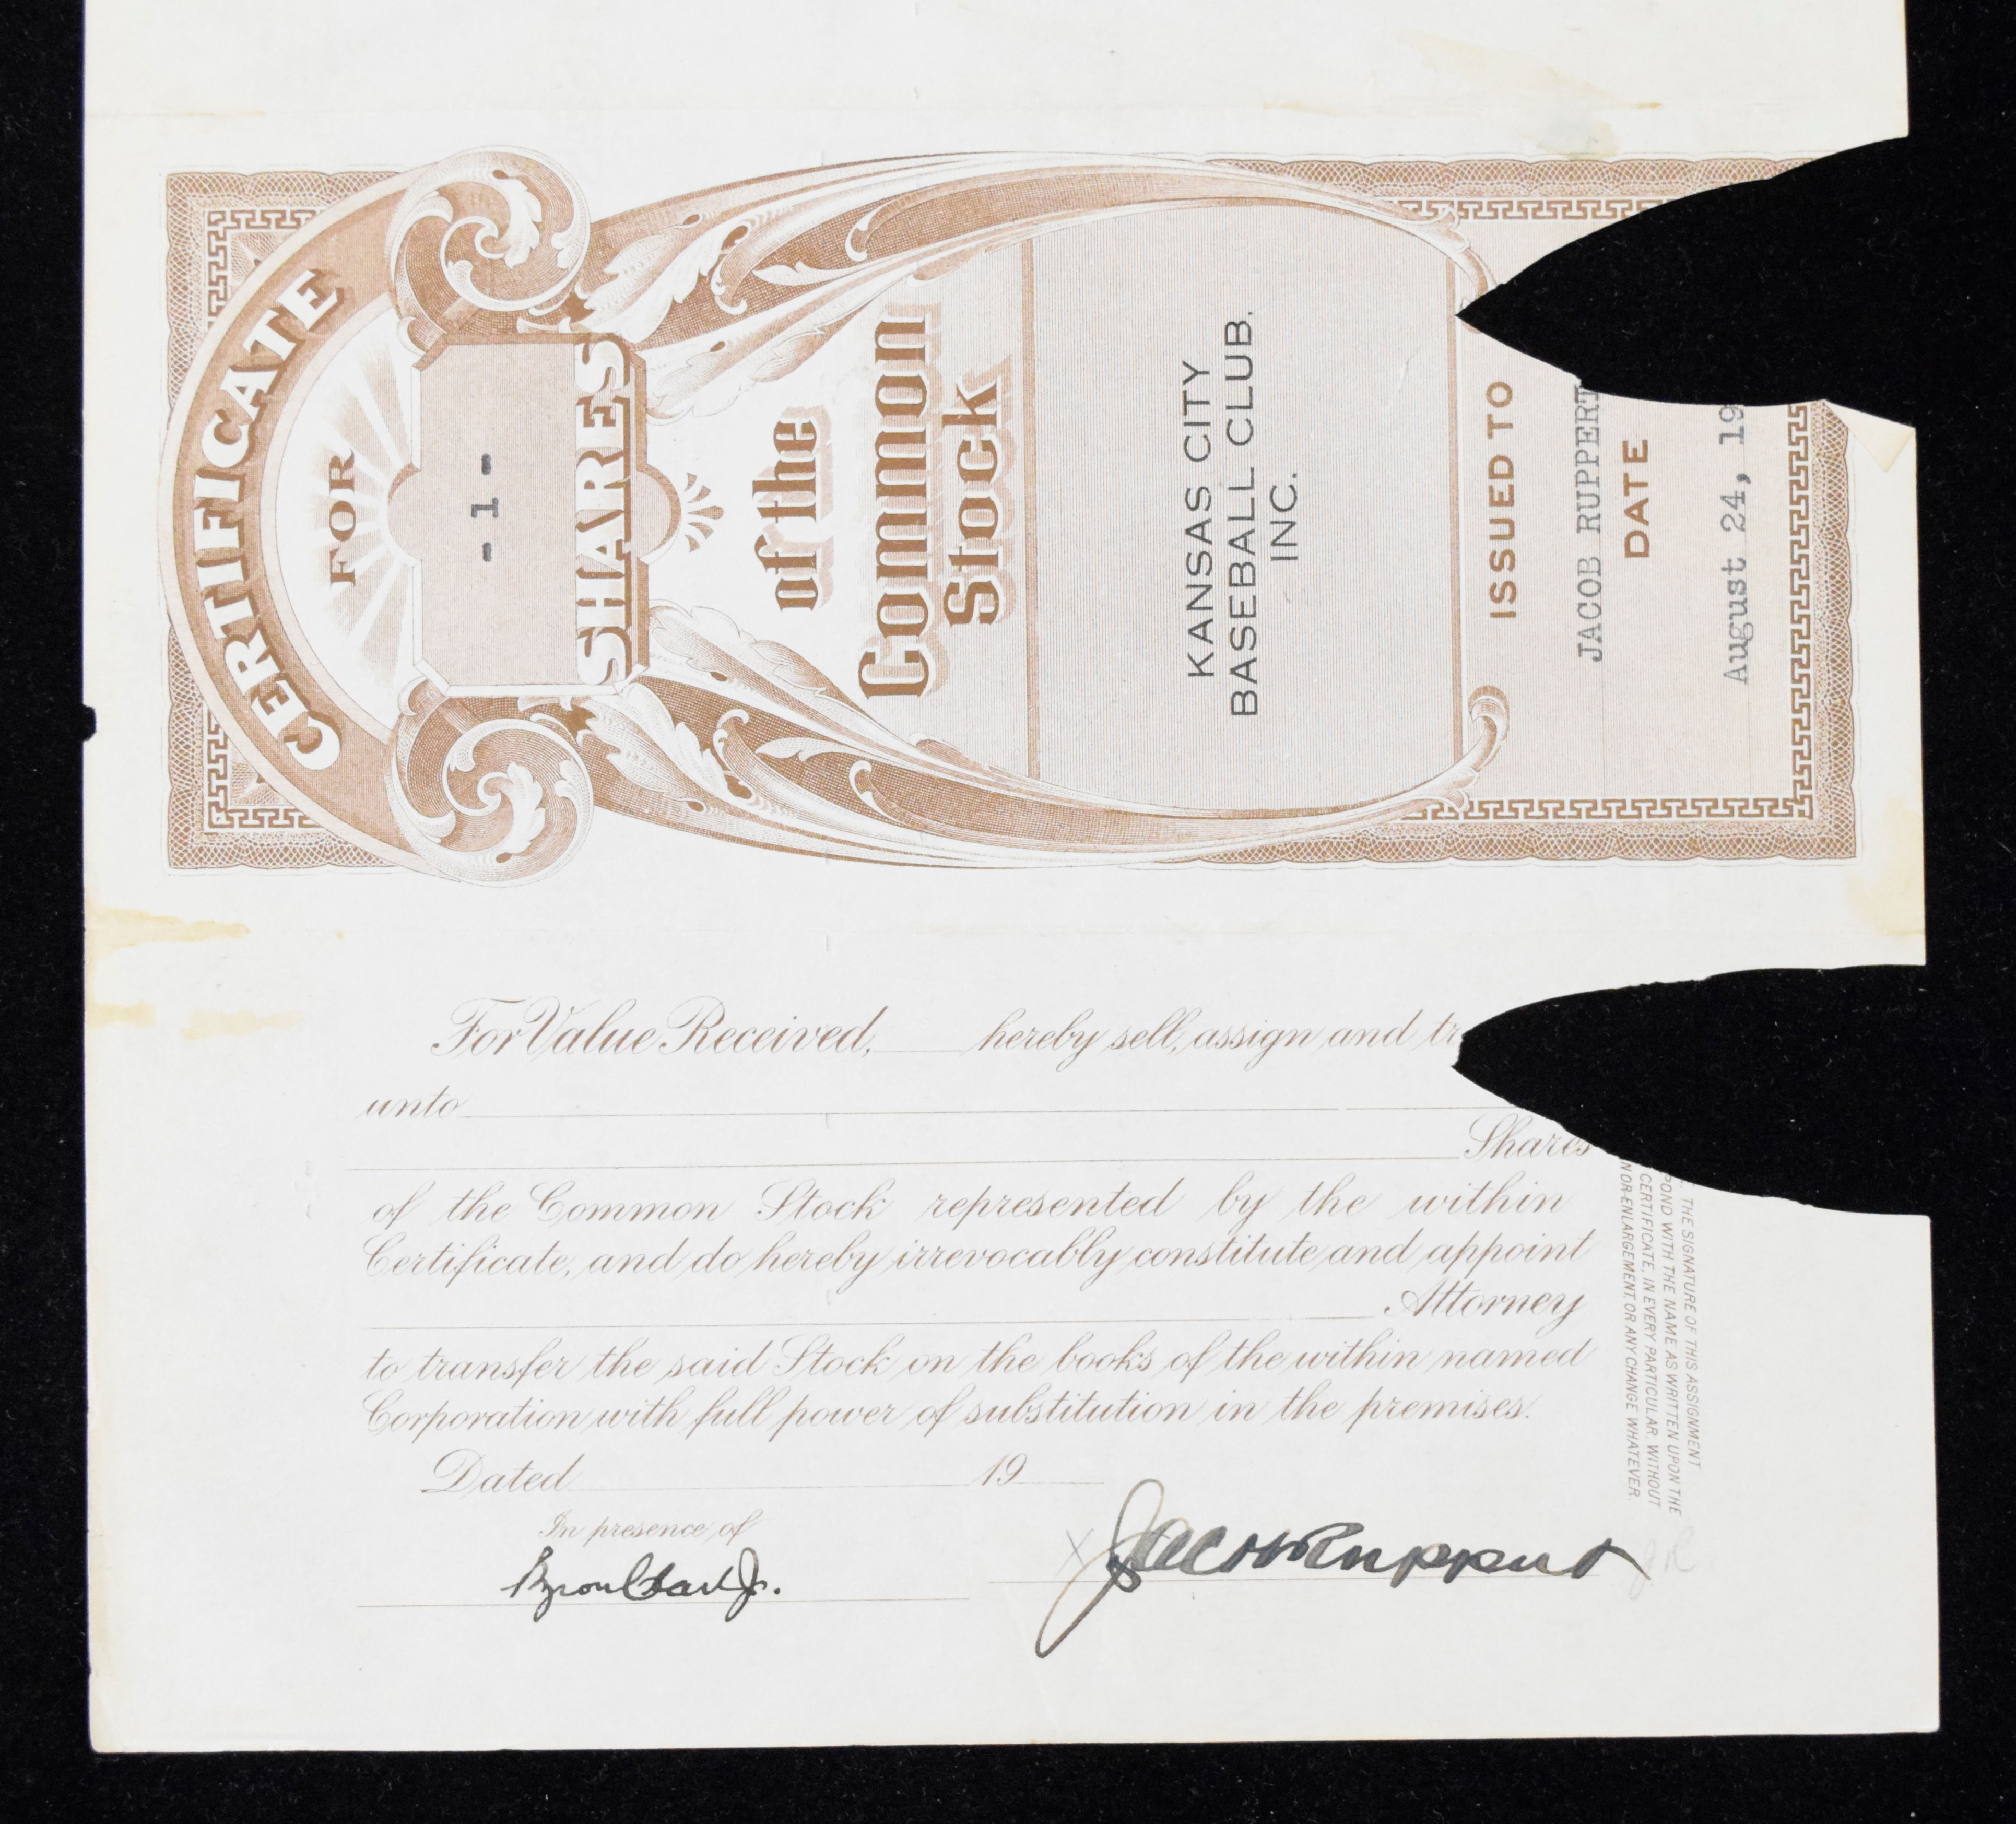 CERTIFICATE
FOR
- 1 -
SHARES
of the
Common
Stock
KANSAS CITY
BASEBALL CLUB.
INC.
ISSUED TO
JACOB RUPPERT
DATE
August 24, 19
For Value Received, hereby sell, assign and tr
unto
Shares
of the Common Stock represented by the within
Certificate, and do hereby irrevocably constitute and appoint
Attorney
to transfer the said Stock on the books of the within named
Corporation with full power of substitution in the premises.
Dated 19
In presence of
Byron Clark Jr.
X Jacob Ruppert
JR
THE SIGNATURE OF THIS ASSIGNMENT
POND WITH THE NAME AS WRITTEN UPON THE
CERTIFICATE, IN EVERY PARTICULAR, WITHOUT
N OR ENLARGEMENT, OR ANY CHANGE WHATEVER